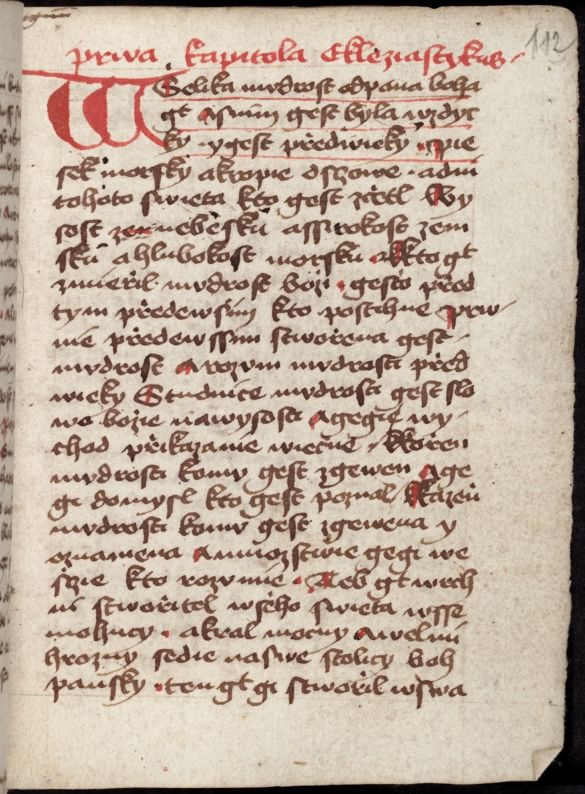 112
prwa kapitola Ekleziastykus
WSelika mudrost odpana boha
gt asnim gest byla wzdyc
ky · ygest předwieky · pie
sek morsky akropie dszowe · adni
tohoto swieta kto gest zčetl Wy
sost zem nebeskú assirokost zem
skú ahlubokost morskú · Akto gt
zmieřil mudrost boži · gesto před
tym předewsim kto postihne prw
nie předewssim stwořena gest ·
mudrost Arozum mudrosti před
wieky Studnice mudrosti gest slo
wo božie nawysosti Agegie wy
chod přikazanie wiecné · Kořen
mudrosti komu gest zgewen Age
gi domysl kto gest poznal Kazeň
mudrosti komu gest zgewena y
oznamena Amnozstwie gegi we
ssie kto rozumie · Neb gt wrch
ni stwořitel wseho swieta wsse
mohucy · akral mocny Awelmi
hrozny sedie naswe stolicy boh
pansky · ten gt gi stwořil wswa